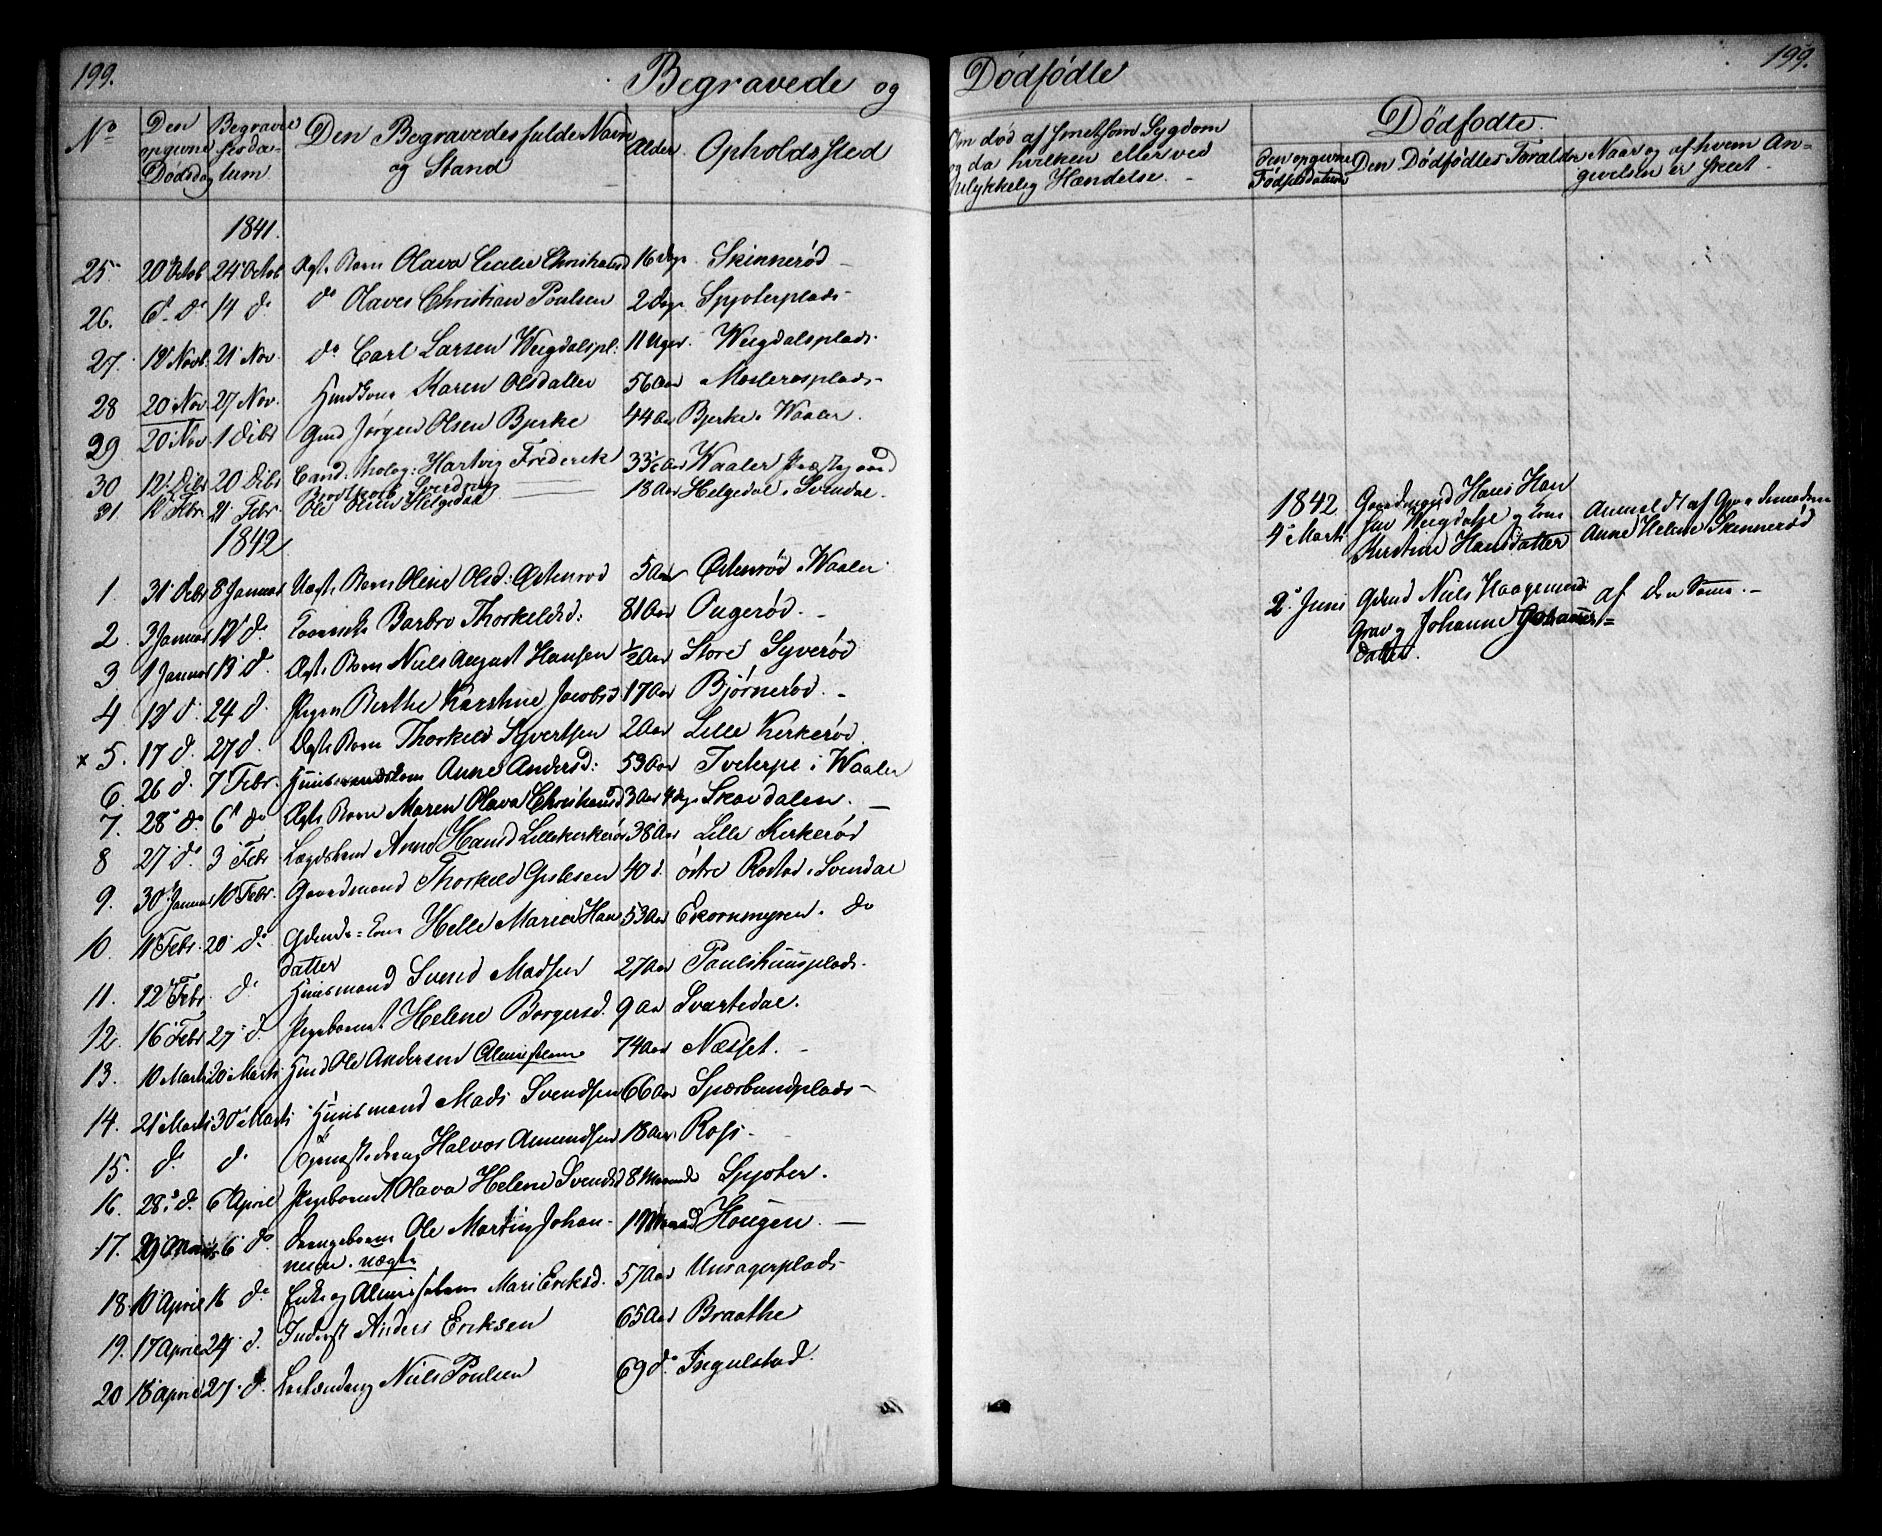 199.
Begravede og Dødfødte
199.
No
Den opgivne Dødsdag
Begravelsesdatum
Den Begravedes fulde Navn og Stand
Alder.
Opholdssted
Om død af smitsom Sygdom og da hvilken eller ved ulykkelig Hændelse.
Dødfødte.
den opgivne Fødselsdatum
Den Dødfødtes Foræld
Naar og af hvem Angivelsen er skeet
1841.
25 20 Octob 24 Octob Ægte Barn Olava Cecilie Christiansd 16 Dage Skinnerød
26. 6 d. d. 14 d. do Olaves Christian Poulsen 2 Dage Spjoterplads
27. 12 Novb. 21 Nov. do Carl Larsen Weigdalspl. 11 Uger. Weigdalsplads.
28 20 Nov 27 Nov. Karen Olsdatter 56 Aar Moslerosplads
29 20 Nov 1 Debr Gmd Jørgen Olsen Bjerke 44 Aar Bjerke i Waaler.
30 12 Debr 20 Debr Cand. theolog: Hartvig Frederik 33½ Aar Waaler Præstegaard
31. 12 Febr. 21 Febr. Ole Olsen Helgedal 18 Aar Helgedal i Svendal.
1842
1. 31 Debr 8 Januar Ægte Barn Oline Olsd: Østenrød 5 Aar Østenrød i Waaler
2. 3 Januar 12 d. Barbro Thorkelsd: 81 Aar Ougerød.
3 1 Januar 13 d. Ægte Barn Niels August Hansen ½ Aar Store Syverød
4 12 d. 24 d. Pigen Berthe Karstine Jacobsd 17 Aar Bjørnerød.
x 5. 17 d. 27 d. Ægte Barn Thorkeld Syvertsen 2 Aar Lille Kerkerød
6. 26 d. 7 Febr. Huusmandskone Anne Andersd: 53 Aar Tveterpl i Waaler
7. 28 do. 6 do Ægte Barn Maren Olava Christiansd 3 Aar 4 Dage Skovdalen.
8 27 do 3 Febr Lægdslem Anne Hansd Lillekerkerød 38 Aar Lille Kerkerød
9. 30 Januar 10 Febr. Gaardmand Thorkeld Gislesen 40 d. østre Rostad i Svendal
10. 11 Febr. 20 do Gdmds Kone Helle Maria Hansdatter 53 Aar Ekornmyren. do
11. 12 Febr. d. Huusmand Svend Madsen 27 Aar Paulshuusplads.
12. 16 Febr 27 d. Pigebarnet Helene Borgersd. 9 Aar Svartedal.
13. 10 Marts 20 Marts Hmd Ole Andersen Almisselem 74 Aar Næsset.
14. 21 Marts 30 Marts Huusmand Mads Svendsen 66 Aar Spærbundplads
15. d. d. Tjenestedreng Halvor Amundsen 18 Aar Rosj
16. 28 d. 6 April Pigebarnet Olava Helene Svendsd 8 Maaneder Spjoter.
17. 29 Marts 6 do Drengebarn Ole Martin Johannesen. uægte 19 Maaned Hougen.
18 10 April 16 do Enke og Almisselem Mari Eriksd. 57 Aar Unsagerplads
19. 17 April 24 d. Inderst Anders Eriksen 65 Aar Braathe
20 18 April 27 d. Niels Poulsen 69 d. Ingulstad.
1842
4 Marts
Gaardmand Hans Hansen Weigdalsp og Kone Kirstine Hansdatter
Anmeldt af Anne Helene Skinnerød
2 Juni
Gdmd Niels Haagensen Grav og Johanne Johannesdatter.
af den Samme.